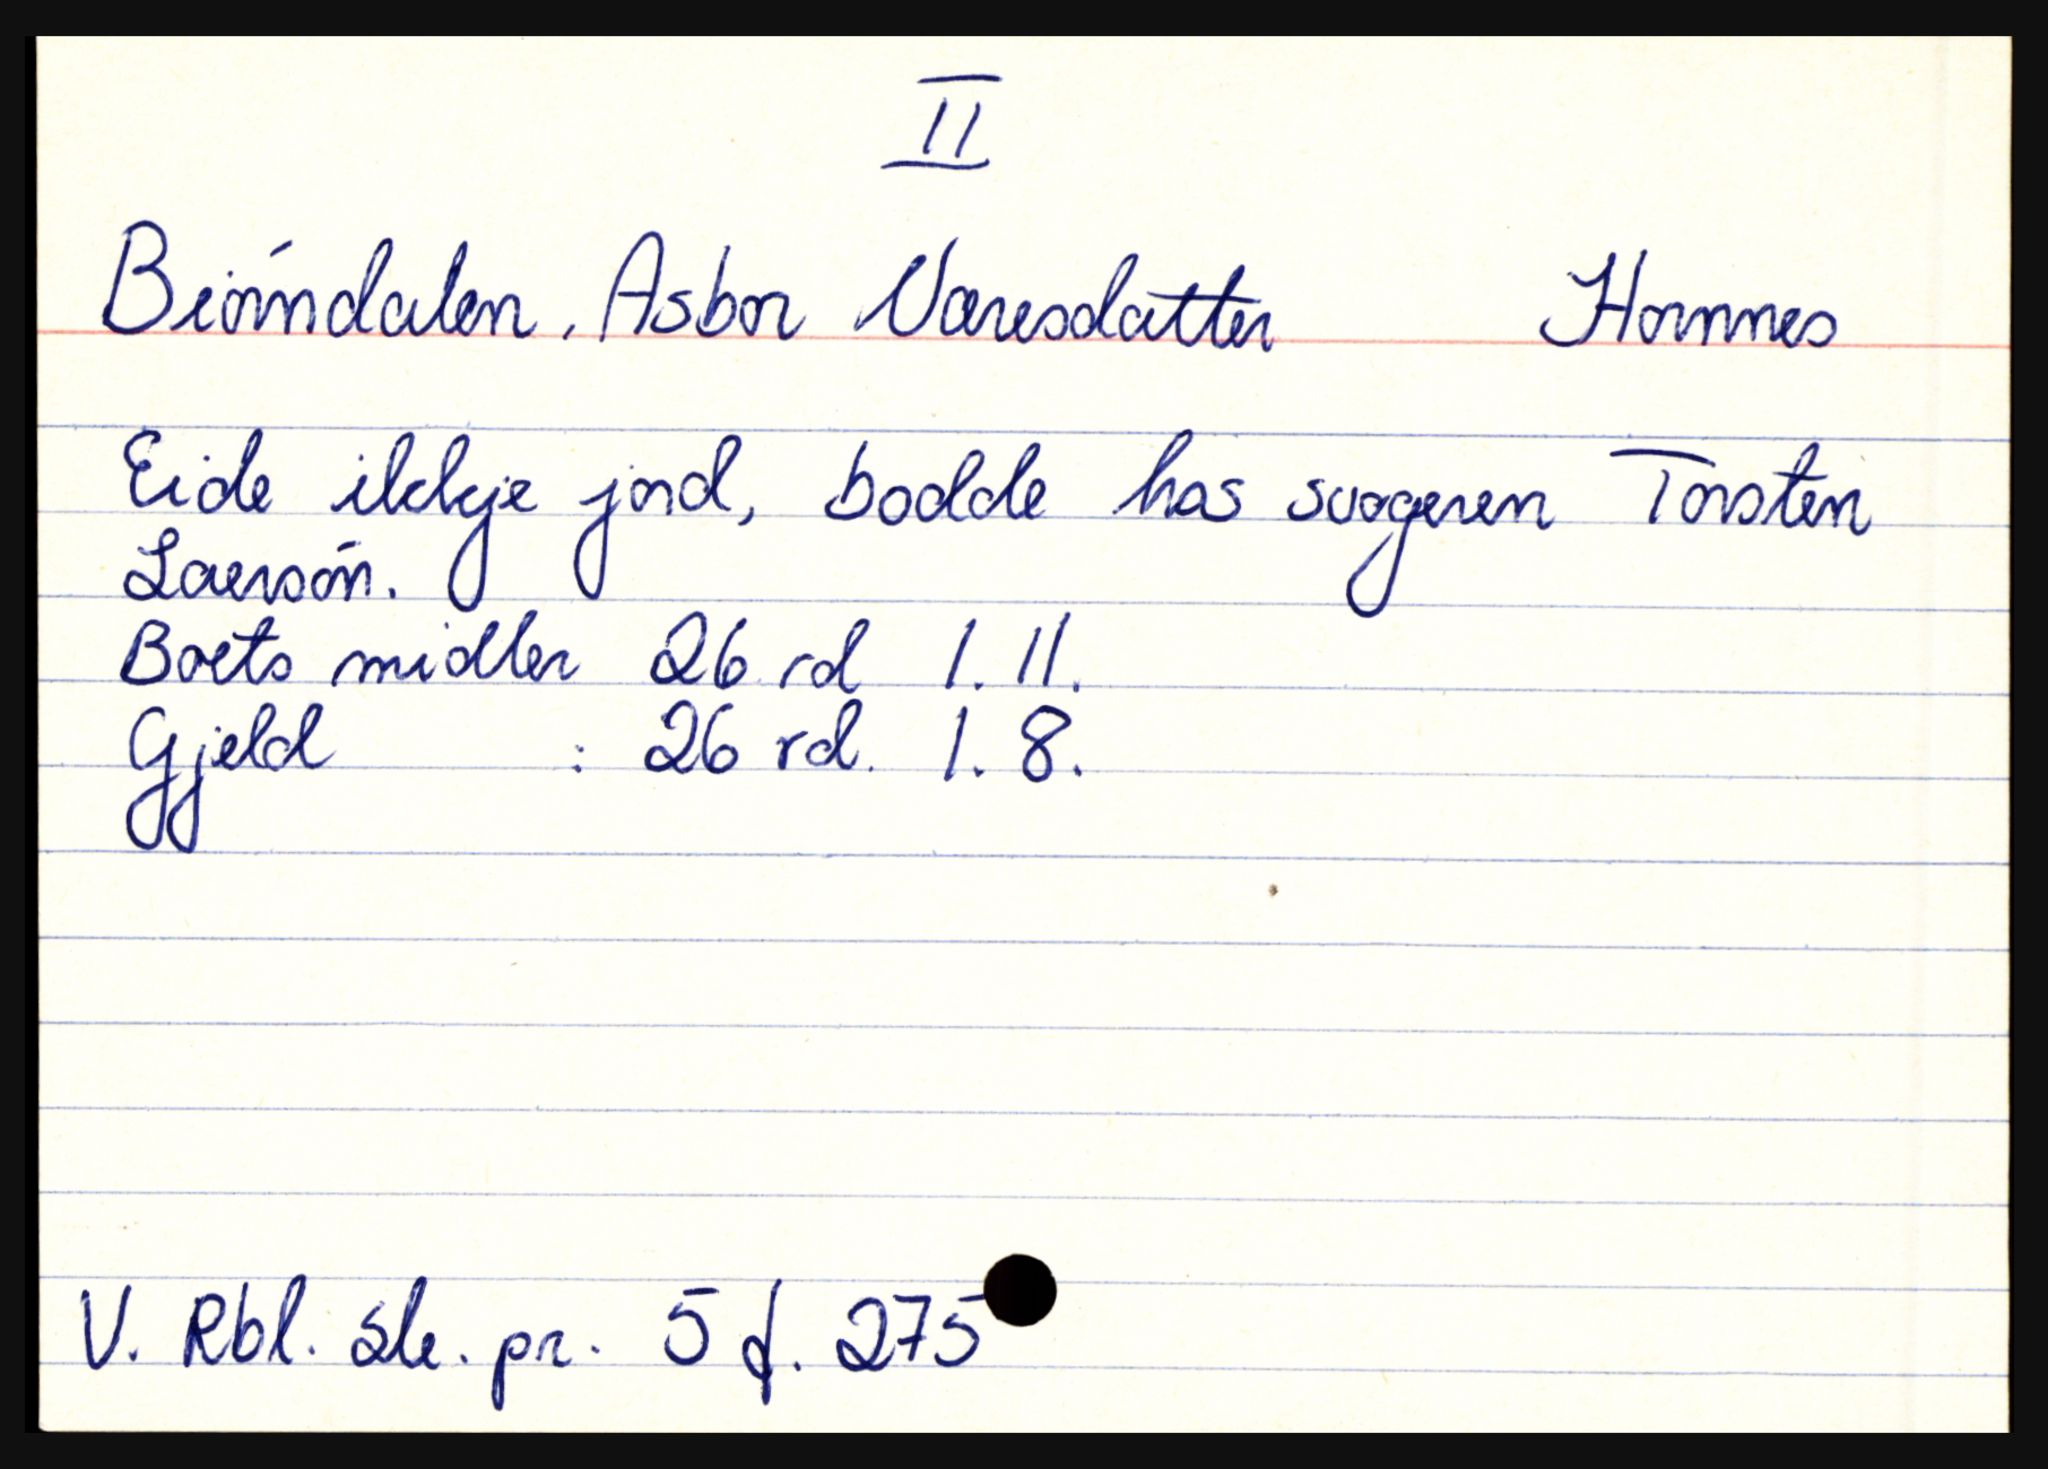 II
Bióndalen, Asbor Naresdatter Hornnes
Eide ikkje jord, bodde hos svogeren Torsten
Laersón.
Boets midler 26 rd 1. 11.
Gjeld : 26 rd. 1. 8.
V. Rbl. sk. pr. 5 f. 275